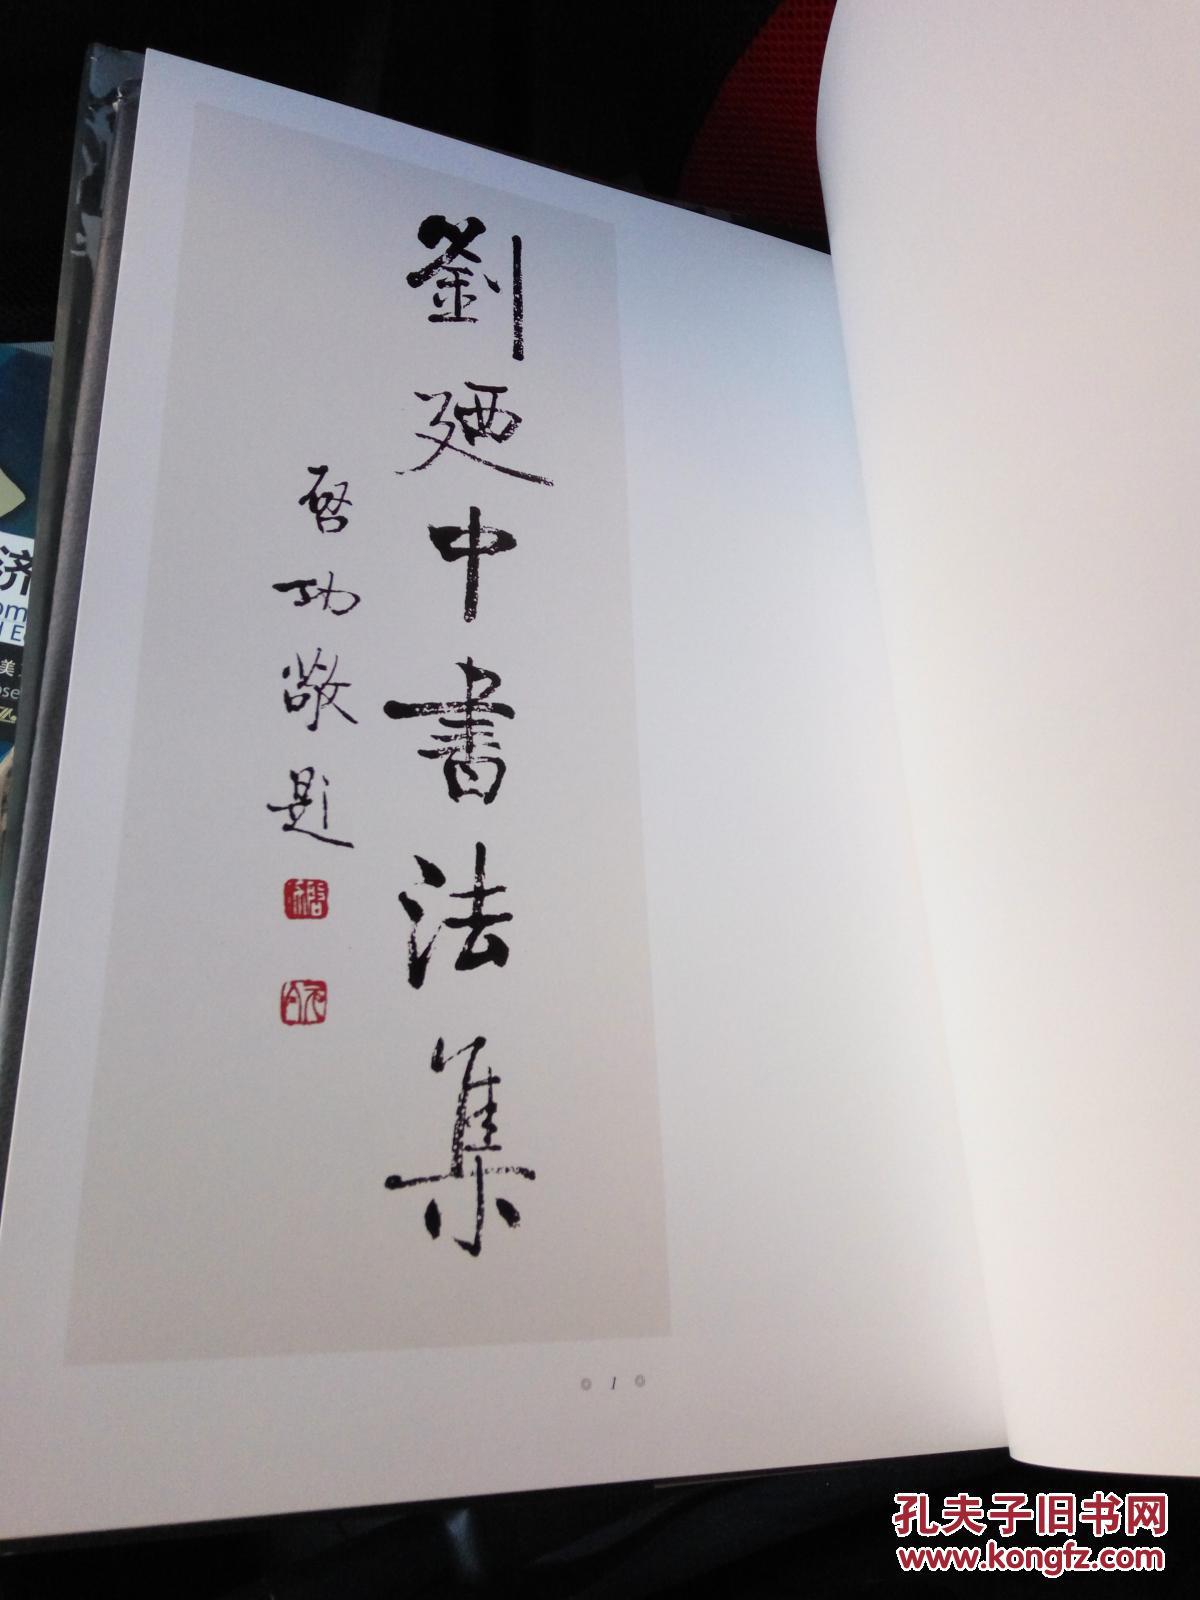 劉廼中書法集
啓功敬題
1
济
美
孔夫子旧书网
www.kongfz.com